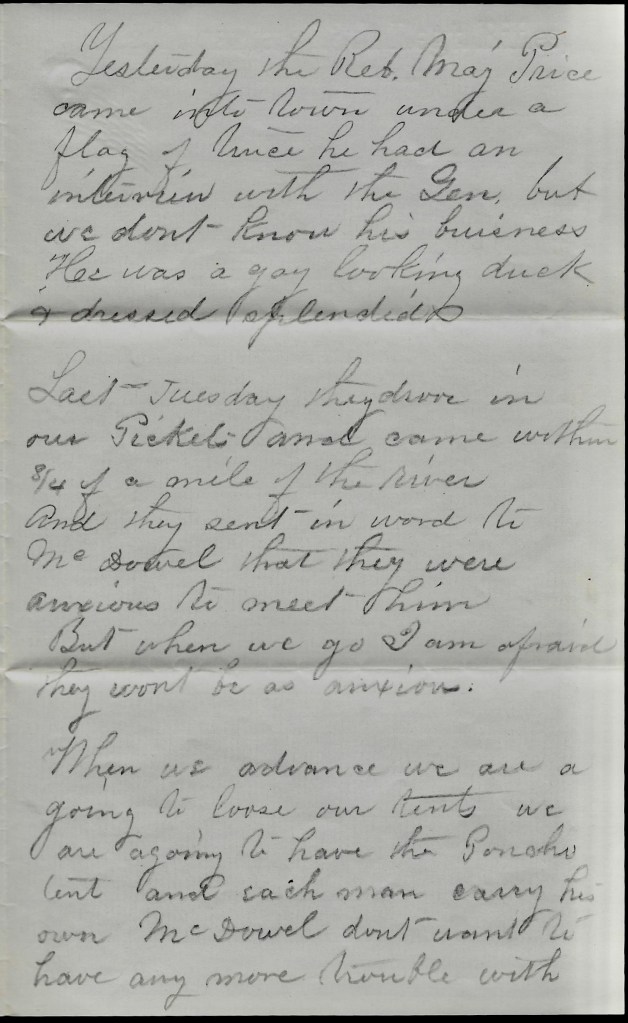 Yesterday the Reb. Maj Price
came into town under a
flag of truce he had an
interview with the Gen. but
we dont know his buisness
He was a gay looking duck
& dressed splendid
Last Tuesday they drove in
our Pickets and came within
3/4 of a mile of the river
And they sent in word to
McDowel that they were
anxious to meet him
But when we go I am afraid
they wont be as anxious.
When we advance we are a
going to loose our tents we
are agoing to have the Poncho
tent and each man carry his
own McDowel dont want to
have any more trouble with